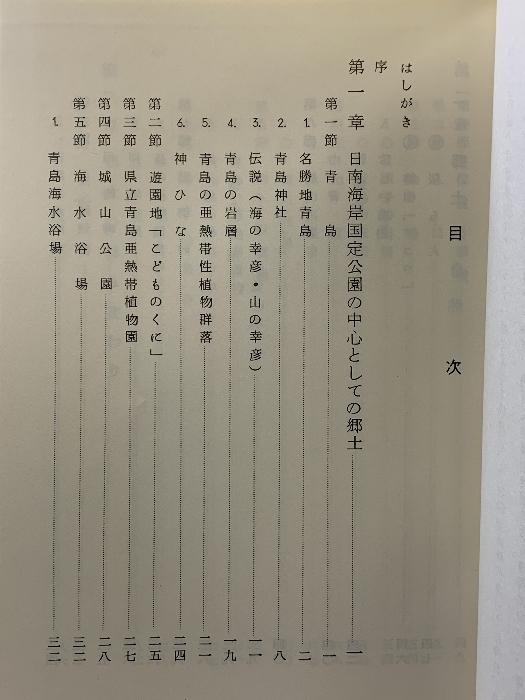 目次
はしがき
序
第一章 日南海岸国定公園の中心としての郷土……一
第一節 青島……一
1. 名勝地青島……二
2. 青島神社……八
3. 伝説(海の幸彦・山の幸彦)……一一
4. 青島の岩層……一九
5. 青島の亜熱帯性植物群落……二一
6. 神ひな……二四
第二節 遊園地「こどものくに」……二五
第三節 県立青島亜熱帯植物園……二七
第四節 城山公園……二八
第五節 海水浴場……三二
1. 青島海水浴場……三二